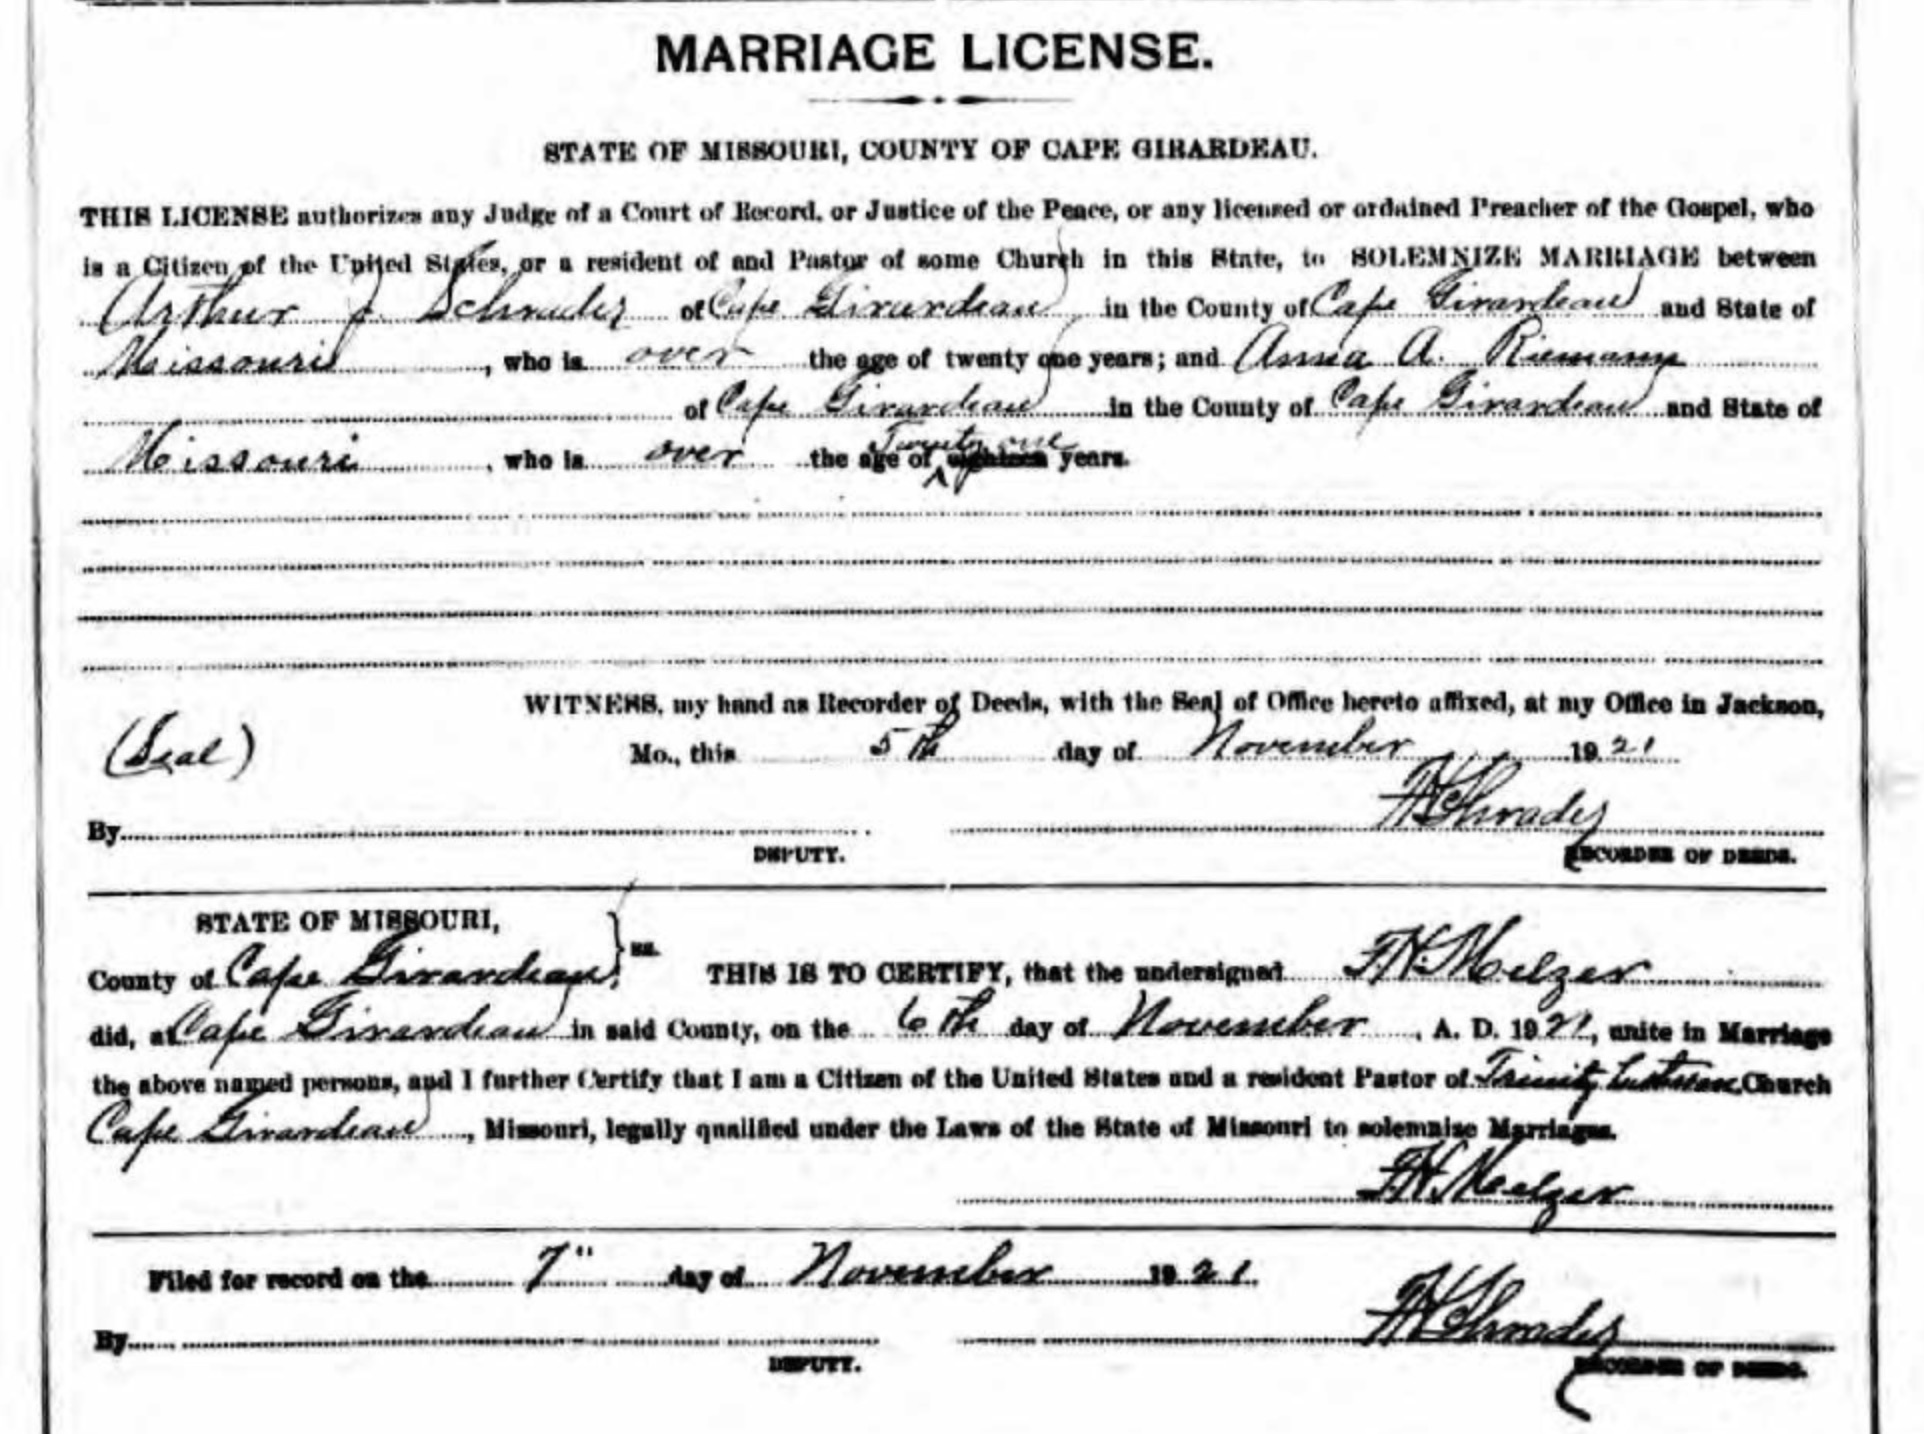 MARRIAGE LICENSE.
STATE OF MISSOURI, COUNTY OF CAPE GIRARDEAU.
THIS LICENSE authorizes any Judge of a Court of Record, or Justice of the Peace, or any licensed or ordained Preacher of the Gospel, who
is a Citizen of the United States, or a resident of and Pastor of some Church in this State, to SOLEMNIZE MARRIAGE between
Arthur J. Schrader of Cape Girardeau in the County of Cape Girardeau and State of
Missouri, who is over the age of twenty one years; and Anna A. Riemann
of Cape Girardeau in the County of Cape Girardeau and State of
Missouri, who is over the age of Twenty one eighteen years.
WITNESS, my hand as Recorder of Deeds, with the Seal of Office hereto affixed, at my Office in Jackson,
(Seal) Mo., this 5th day of November 1921
By
DEPUTY. RECORDER OF DEEDS.
STATE OF MISSOURI,
County of Cape Girardeau } ss. THIS IS TO CERTIFY, that the undersigned F.H. Melzer
did, at Cape Girardeau in said County, on the 6th day of November, A. D. 1921, unite in Marriage
the above named persons, and I further Certify that I am a Citizen of the United States and a resident Pastor of Trinity Lutheran Church
Cape Girardeau, Missouri, legally qualified under the Laws of the State of Missouri to solemnize Marriages.
F.H. Melzer
Filed for record on the 7" day of November 1921
By
DEPUTY. RECORDER OF DEEDS.